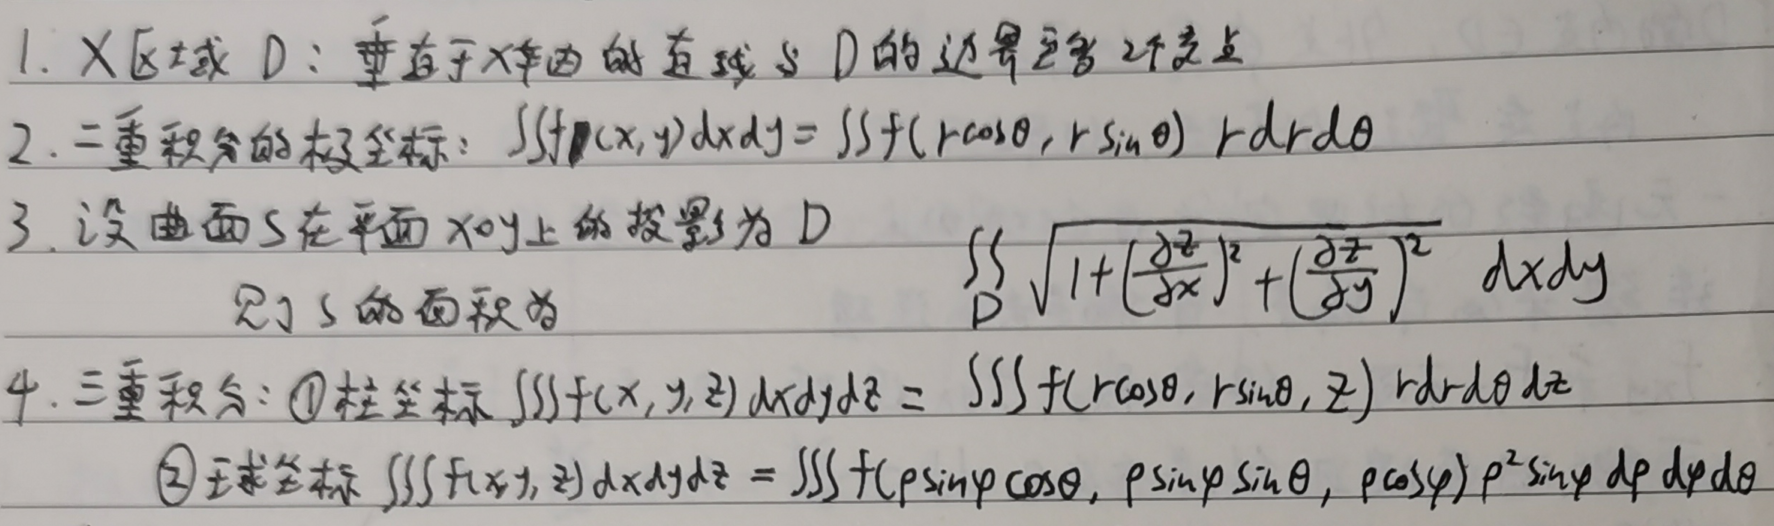 1. X区域 D: 垂直于x轴的直线与D的边界至多2个交点
2. 二重积分的极坐标: ∬f(x,y)dxdy=∬f(rcosθ, rsinθ) rdrdθ
3. 设曲面S在平面xoy上的投影为D
则S的面积为 ∬_D √(1+(∂z/∂x)²+(∂z/∂y)²) dxdy
4. 三重积分: ①柱坐标 ∭f(x,y,z)dxdydz = ∭f(rcosθ, rsinθ, z) rdrdθdz
②球坐标 ∭f(x,y,z)dxdydz = ∭f(ρsinφcosθ, ρsinφsinθ, ρcosφ)ρ²sinφ dρdφdθ